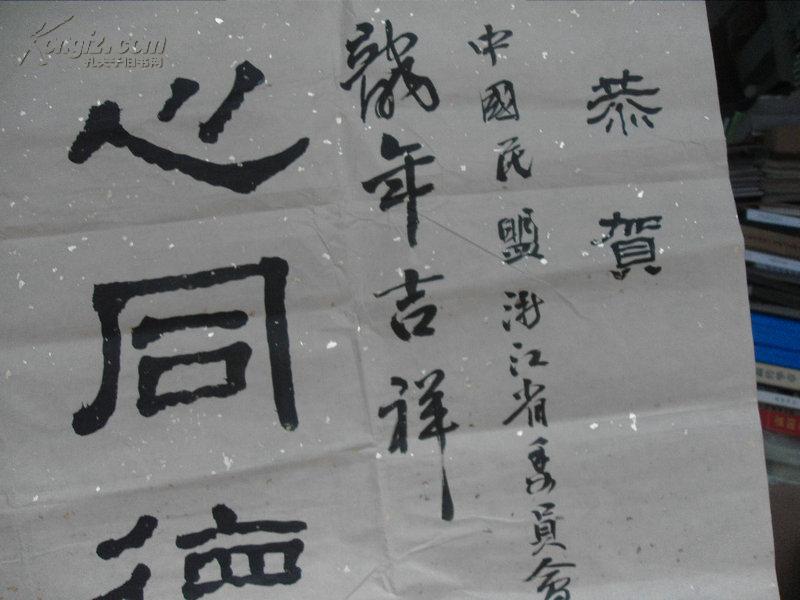 恭賀
中國民盟浙江省委員會
龍年吉祥
心同德
Kongfz.com
孔夫子旧书网